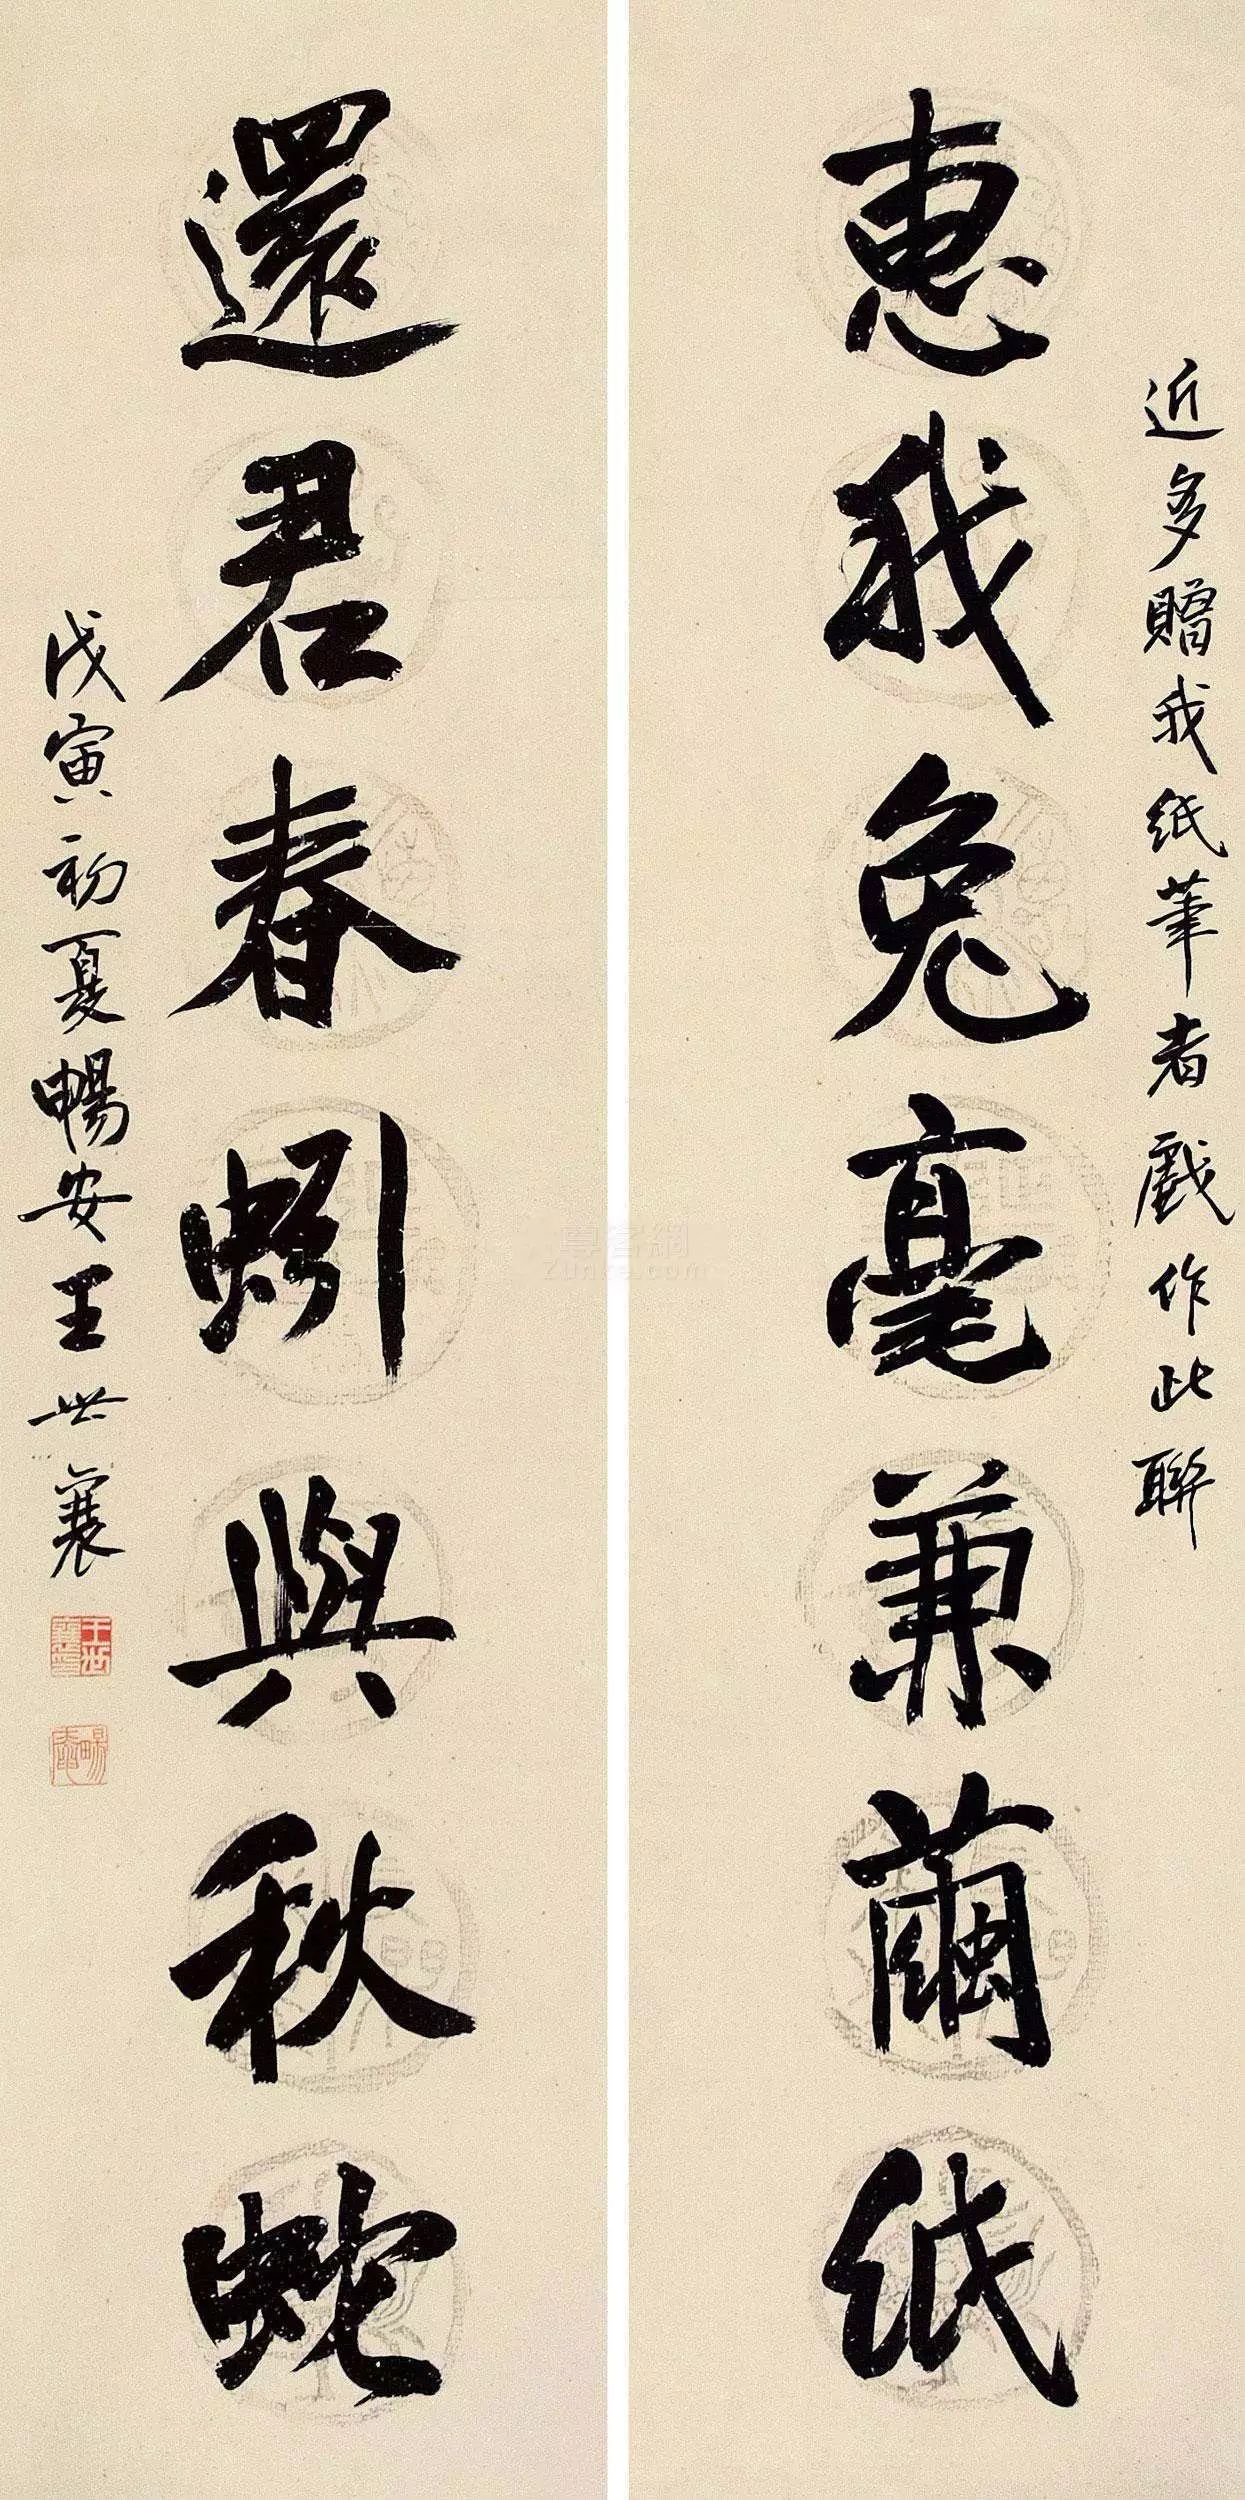 近多贈我紙筆者戲作此聯
惠我兔毫兼繭紙
還君春蚓與秋蛇
戊寅初夏暢安王世襄
王世襄
暢安
尊客網
Zunke.com